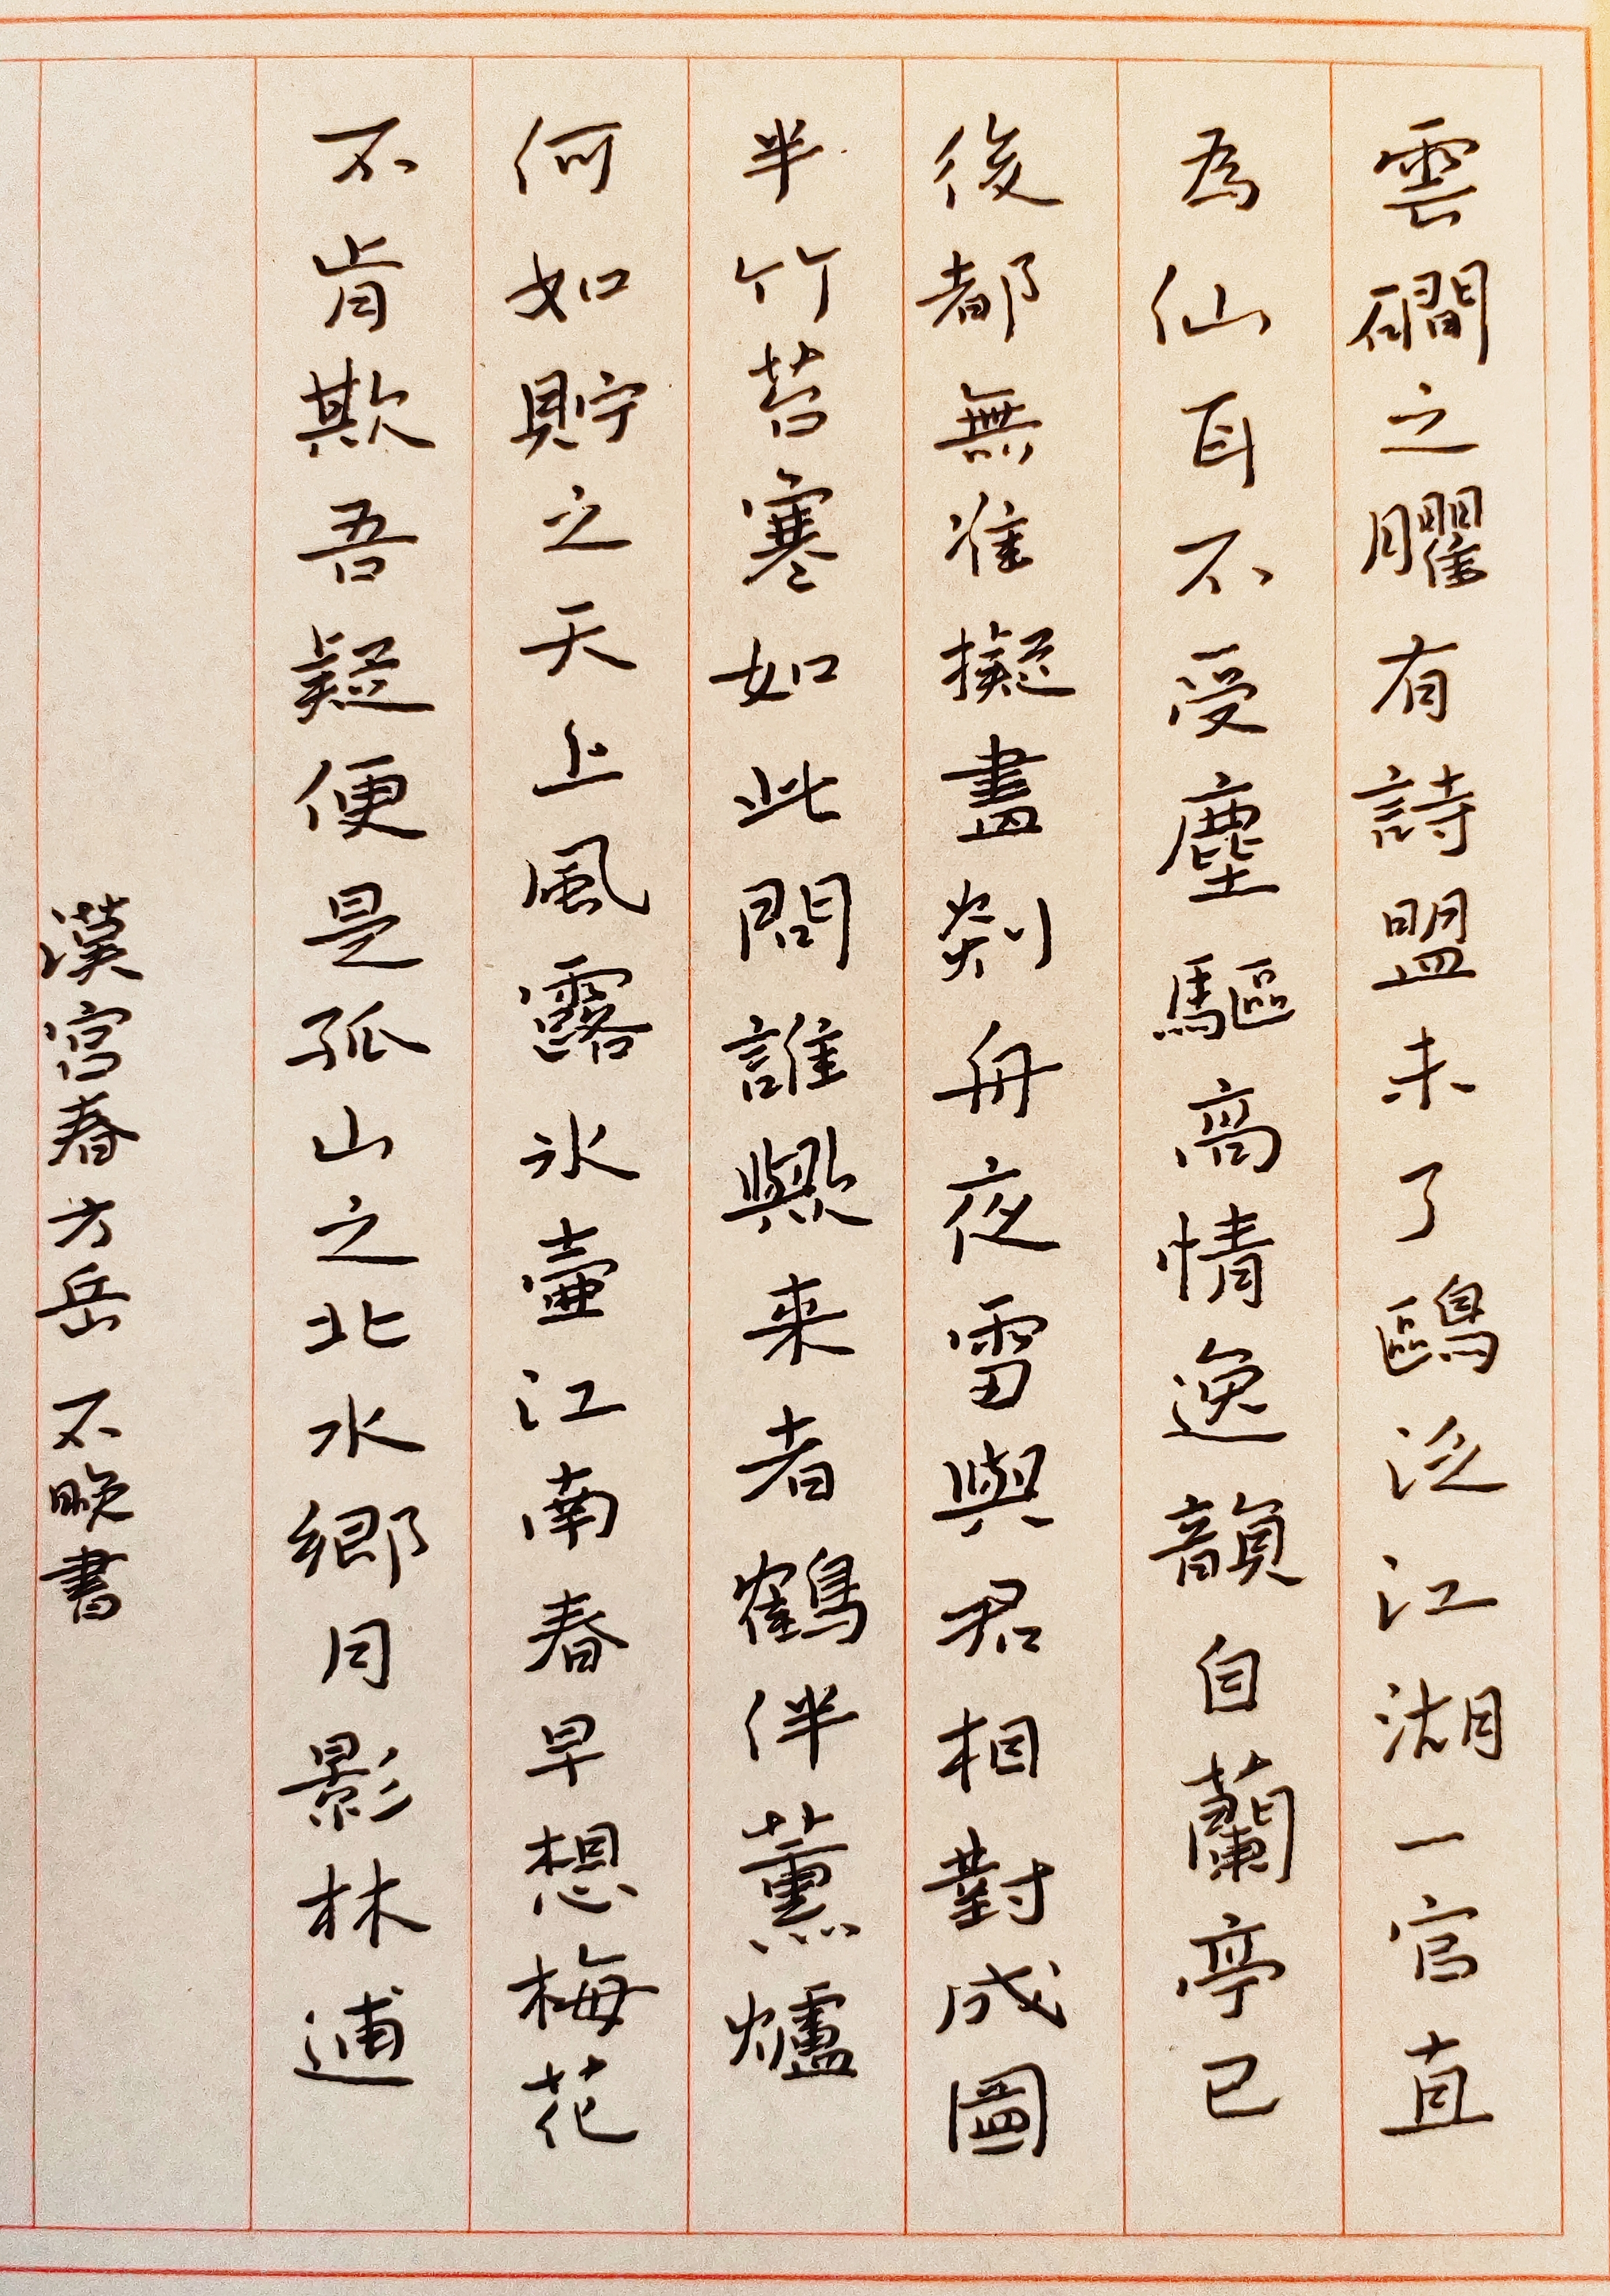 雲磵之臞有詩盟未了鷗泛江湖一官直
為仙耳不受塵驅高情逸韻自蘭亭已
後都無准擬盡剡舟夜雪與君相對成圖
半竹苔寒如此問誰歟来者鶴伴薰爐
何如貯之天上風露冰壺江南春早想梅花
不肯欺吾疑便是孤山之北水鄉月影林逋
漢宮春方岳 不晚書